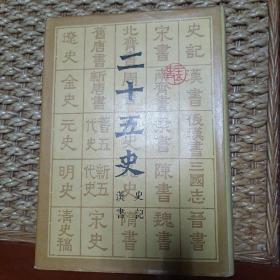 二十五史
史記
漢書
史記 漢書 後漢書 三國志 晉書
宋書 南齊書 陳書 魏書
北齊書 隋書
舊唐書 新唐書 舊五代史 新五代史 宋史
遼史 金史 元史 明史 清史稿